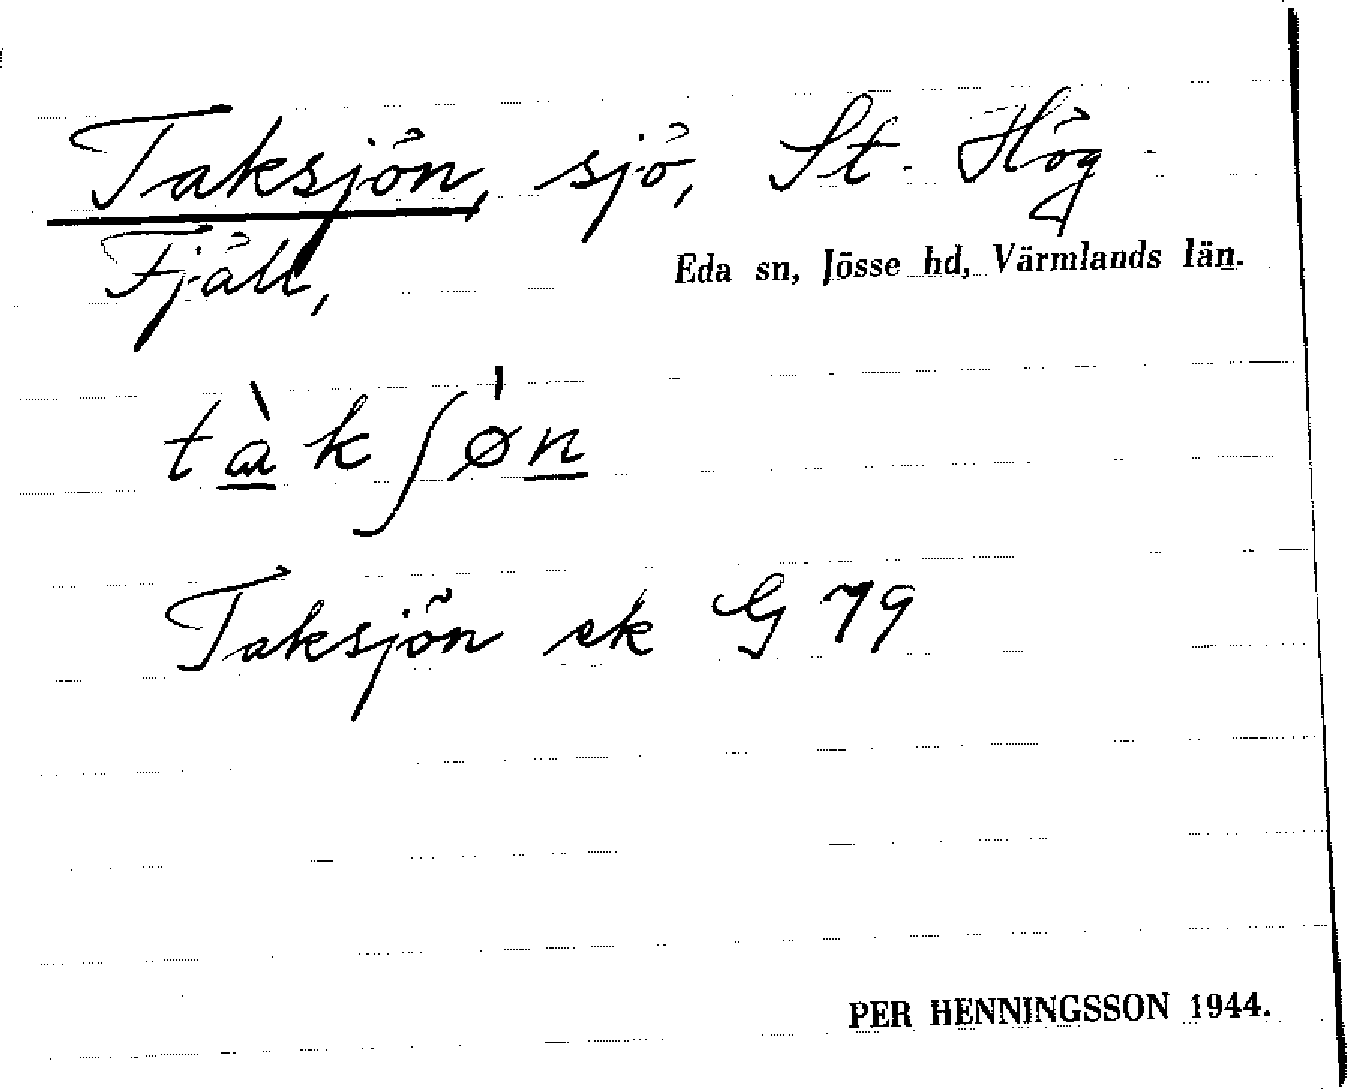 Taksjön, sjö, St. Hög-
Fjäll,
Eda sn, Jösse hd, Värmlands län.
tàkʃø̍n
Taksjön ek G 79
PER HENNINGSSON 1944.